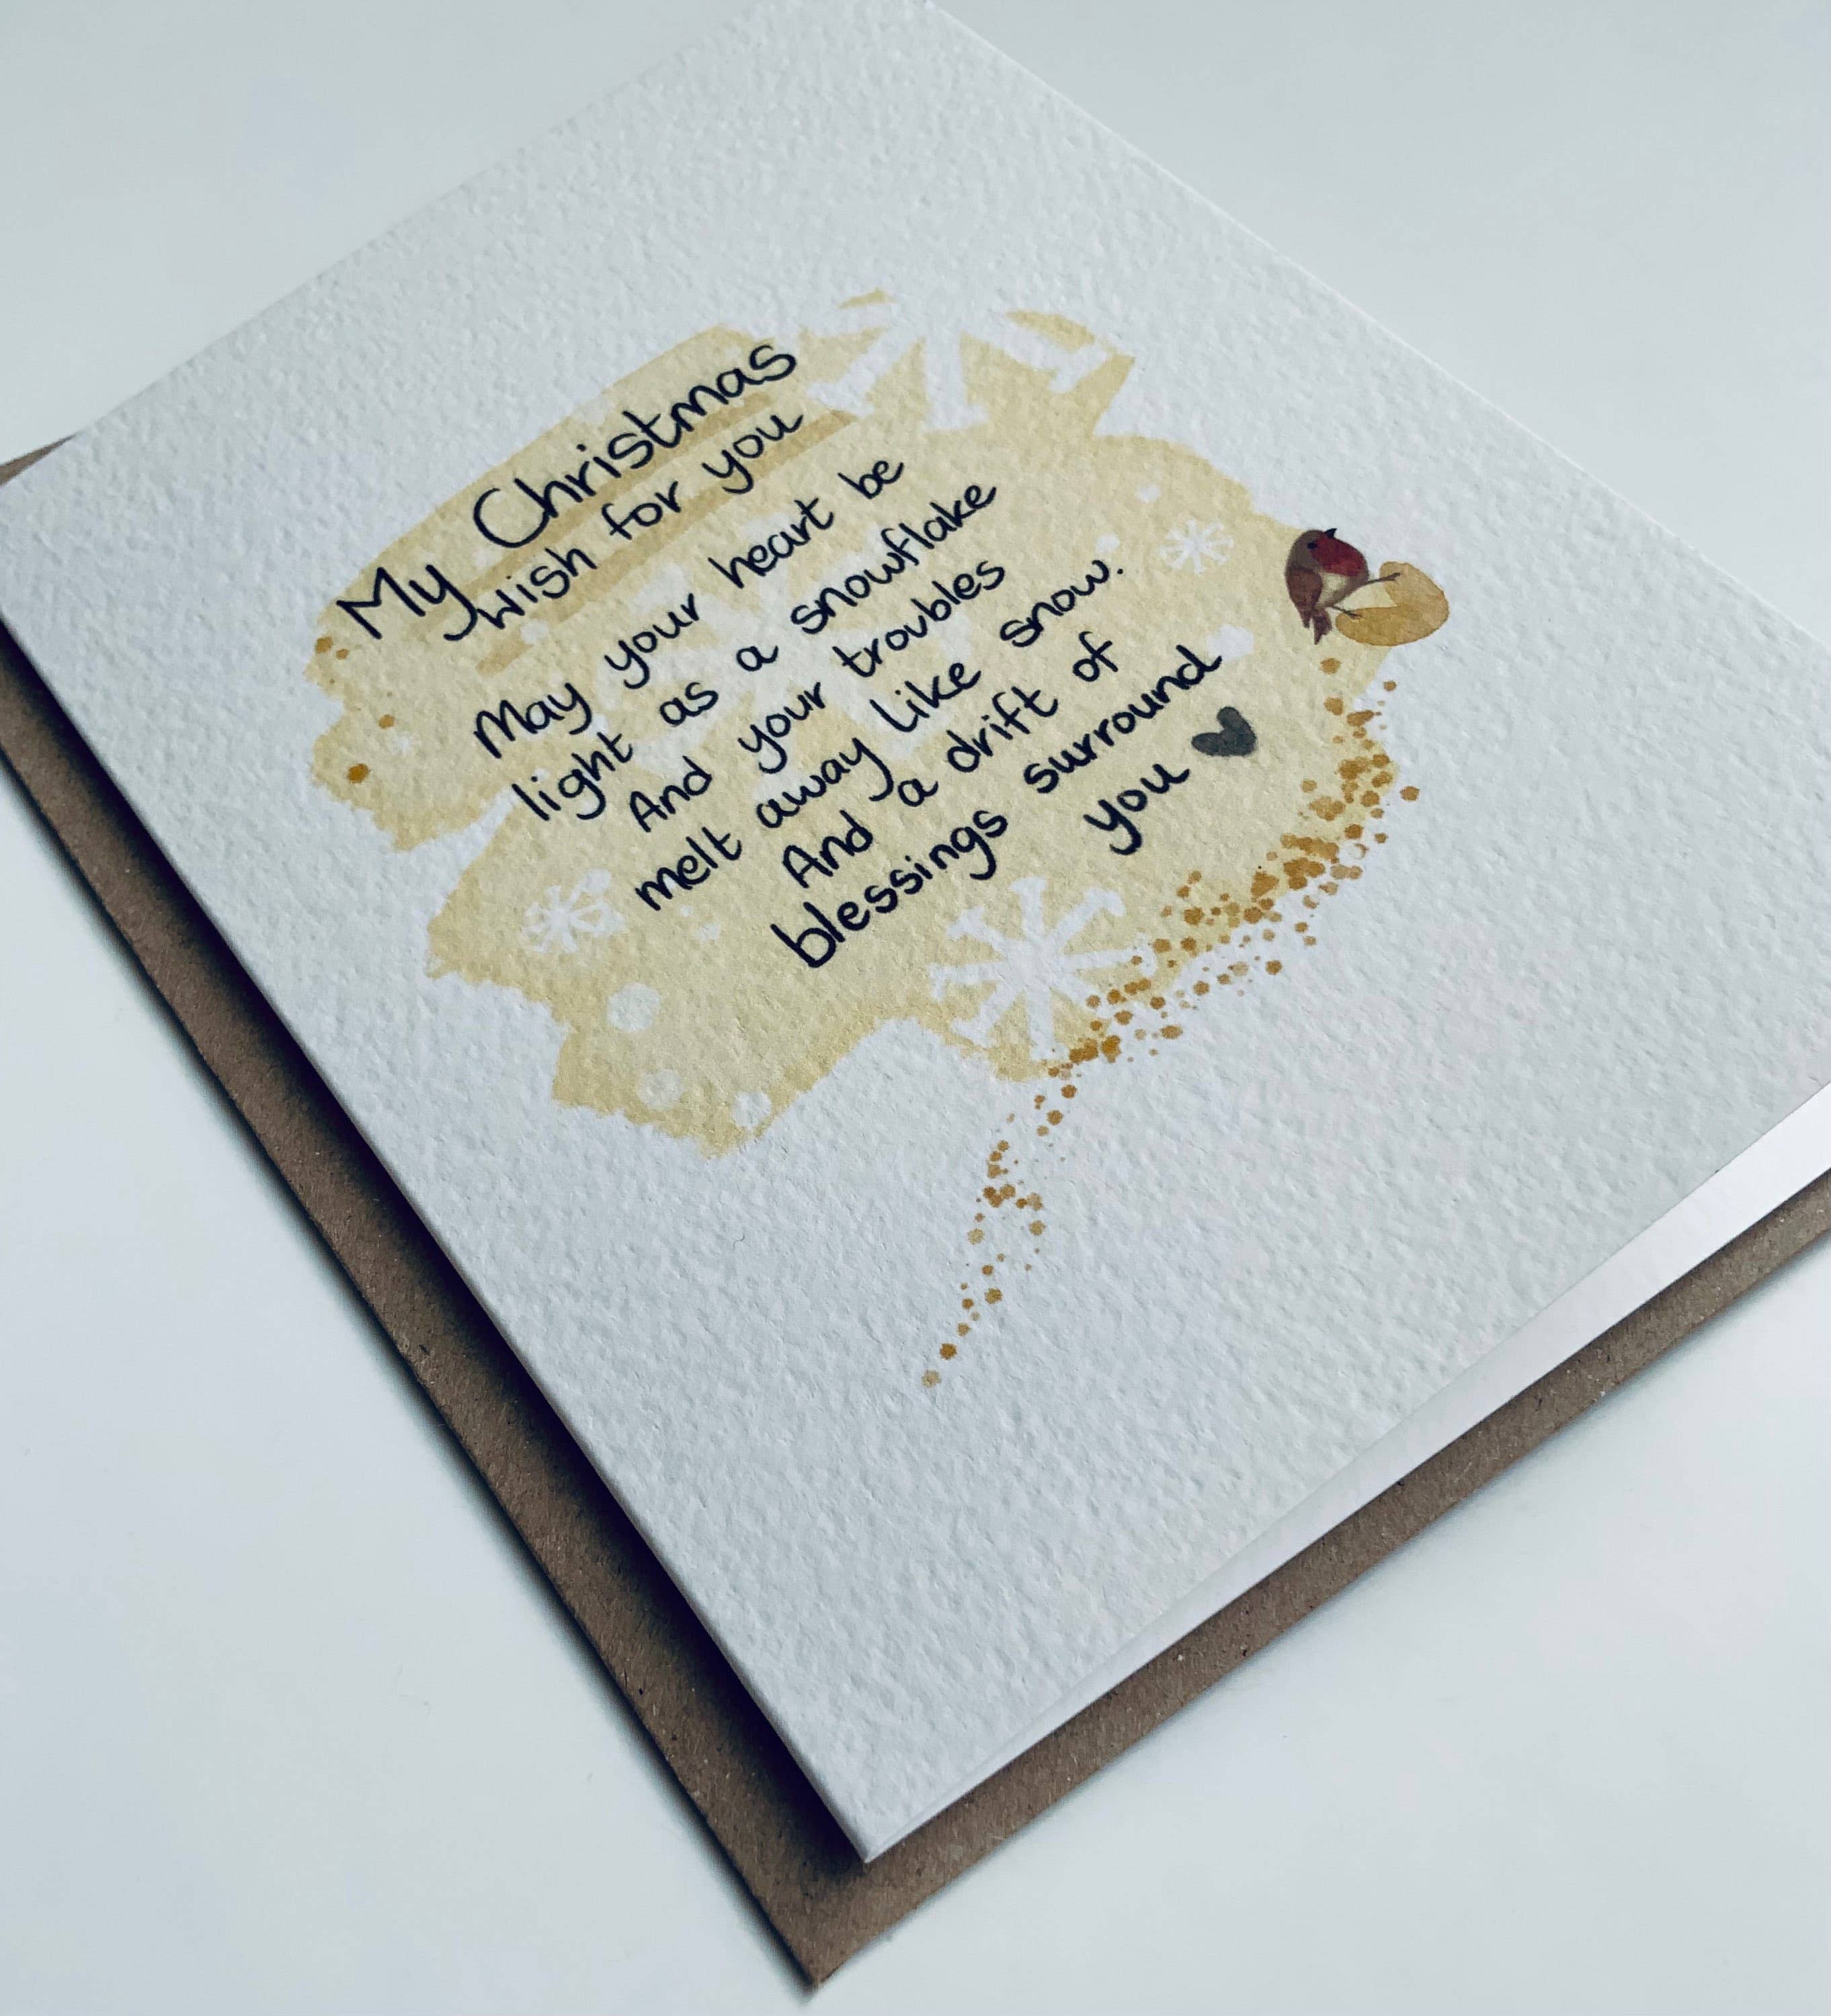 My Christmas
wish for you
May your heart be
light as a snowflake
And your troubles
melt away like snow.
And a drift of
blessings surround
you